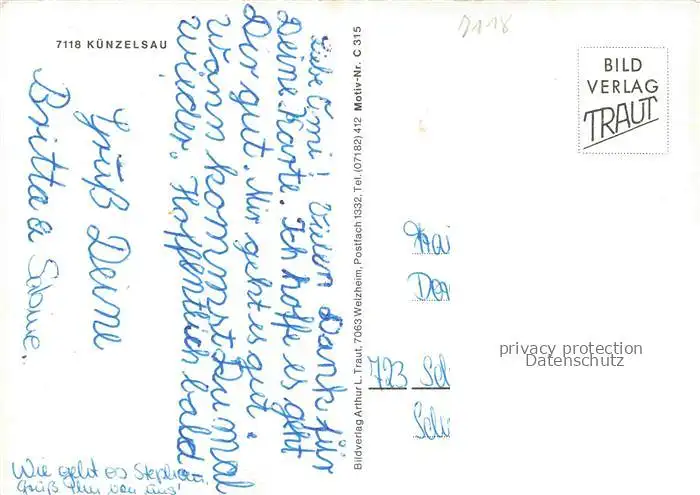 7118 KÜNZELSAU
Liebe Omi! Vielen Dank für
Deine Karte. Ich hoffe es geht
Dir gut. Mir geht es gut.
Wann kommst Du mal
wieder. Hoffentlich bald!
Gruß Deine
Britta & Sabine.
Wie geht es Stephan.
Grüß ihn von uns!
Bildverlag Arthur L. Traut, 7063 Welzheim, Postfach 1332, Tel. (07182) 412 Motiv-Nr. C 315
7118
BILD
VERLAG
TRAUT
723 Sch
Schi
privacy protection
Datenschutz